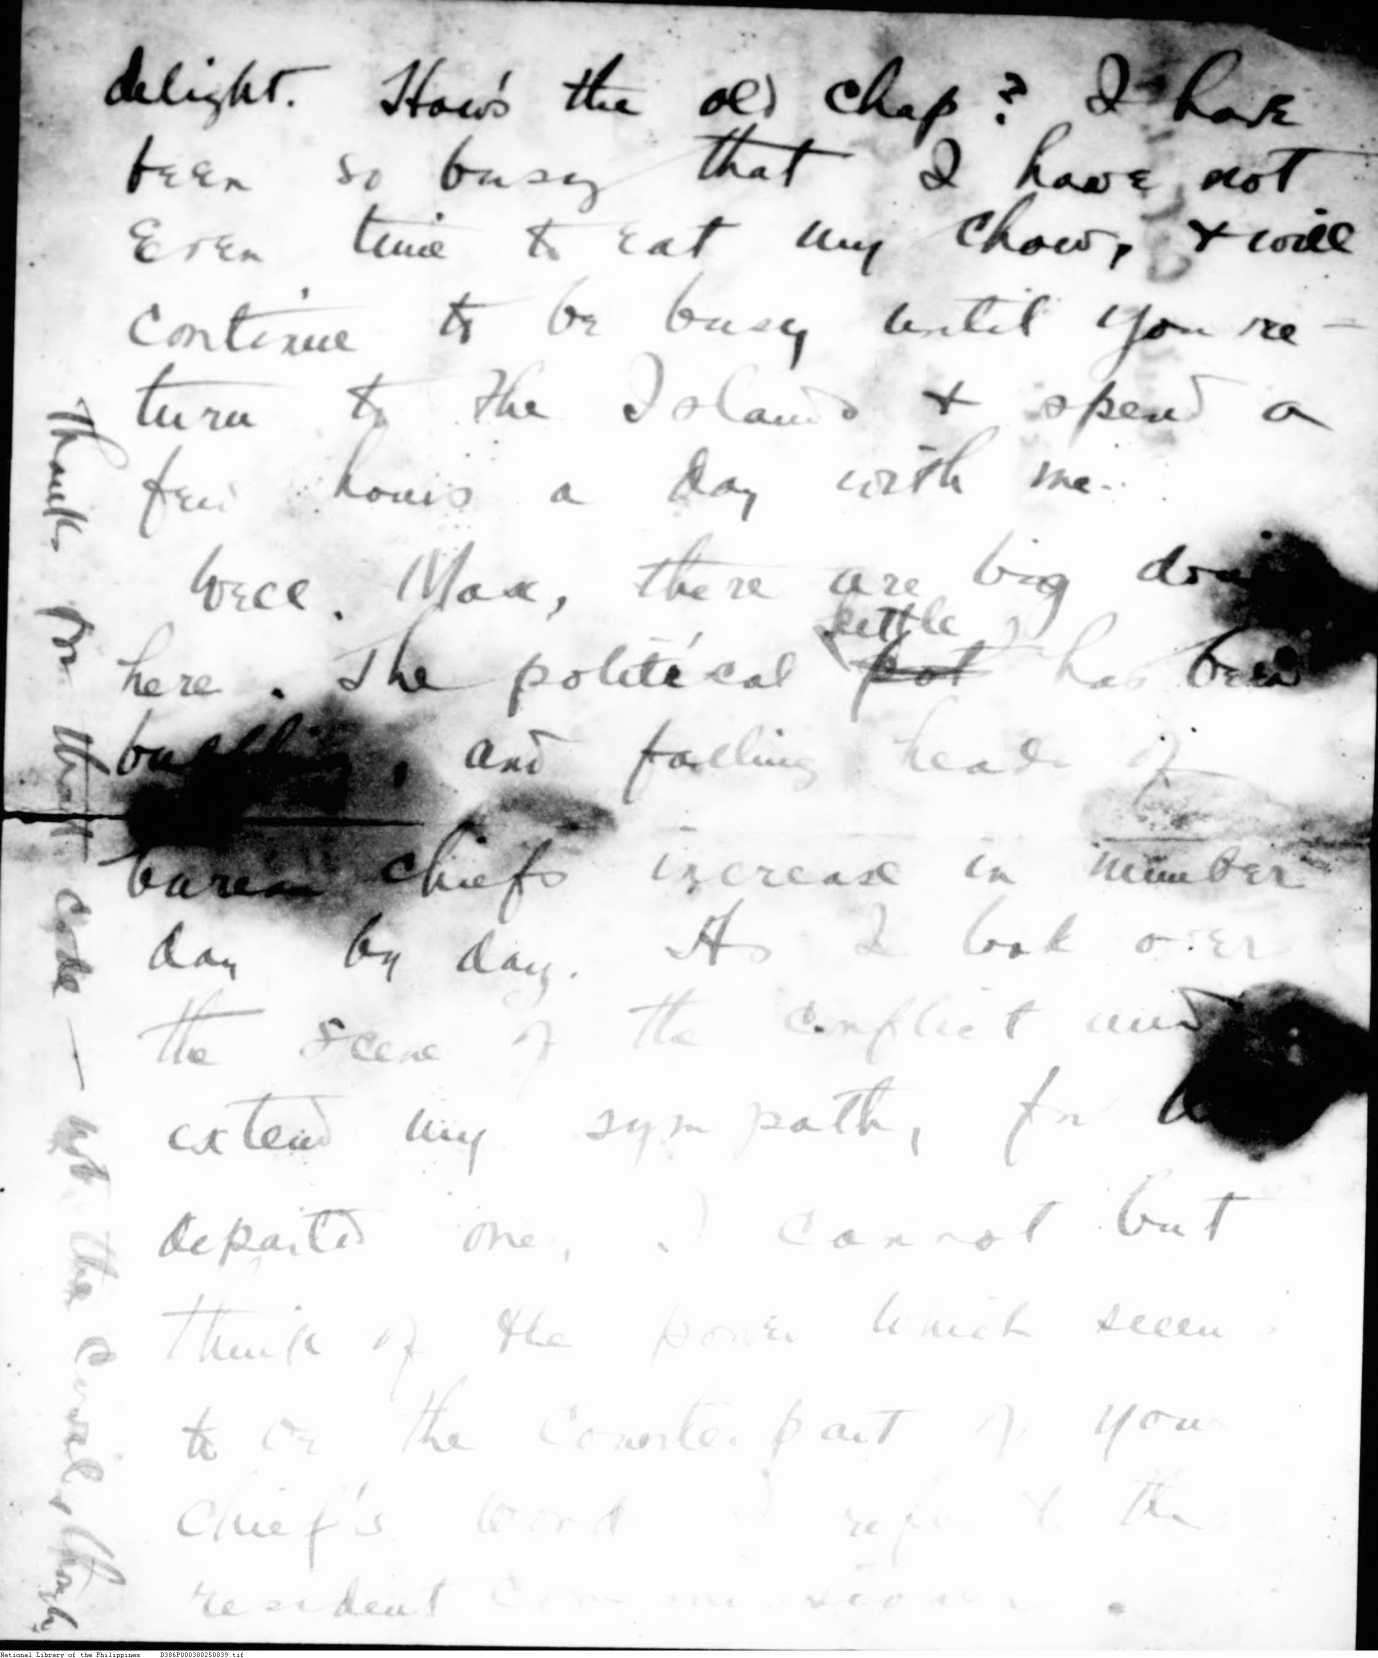 delight. How's the old chap? I have
been so busy that I have not
even time to eat my chow, & will
continue to be busy until you re-
turn to the Islands & spend a
few hours a day with me.
Well, Max, there are big
here. The political kettle pot has been
bubbling, and falling heads of
bureau chiefs increase in number
day by day. As I look over
the scene of the conflict and
extend my sympathy for
departed one, I cannot but
think of the power which seems
to be the counterpart of your
chief's word I refer to the
resident commissioner.
Thanks for that code — not the
National Library of the Philippines D386P000300250039.tif